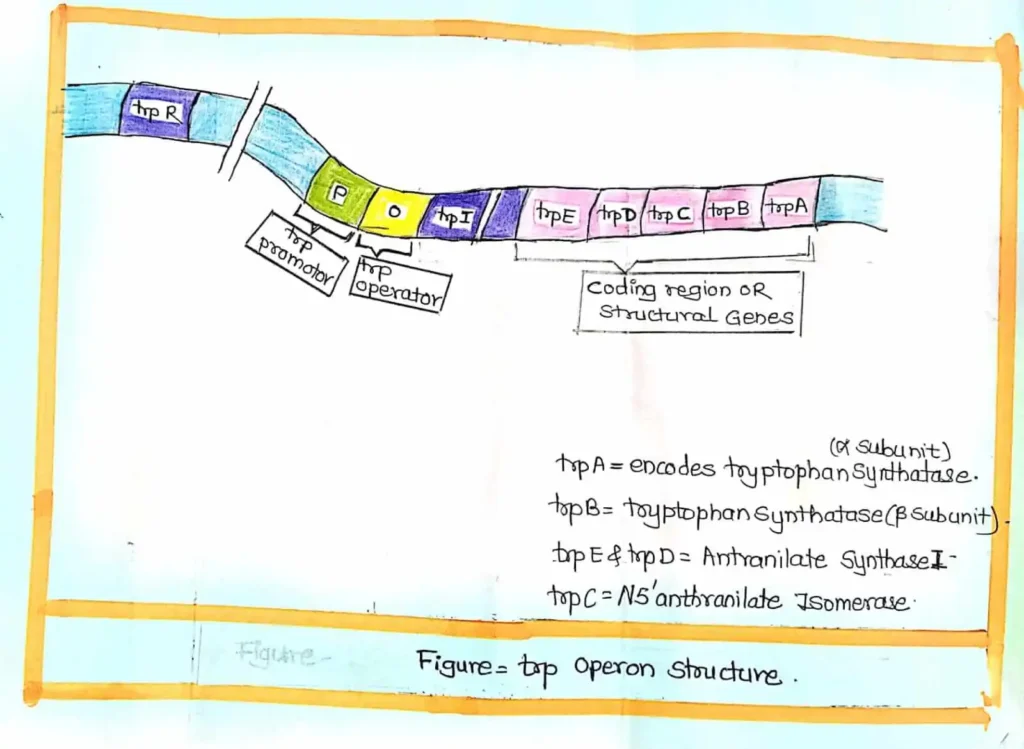 trp R
P
O
trpI
trpE
trpD
trpC
trpB
trpA
trp
promotor
trp
operator
coding region OR
structural Genes
(α subunit)
trpA = encodes tryptophan synthatase.
trpB = tryptophan synthatase (β subunit).
trpE & trpD = Antranilate synthase I-
trpC = N5'anthranilate Isomerase.
Figure-
Figure = trp operon structure.